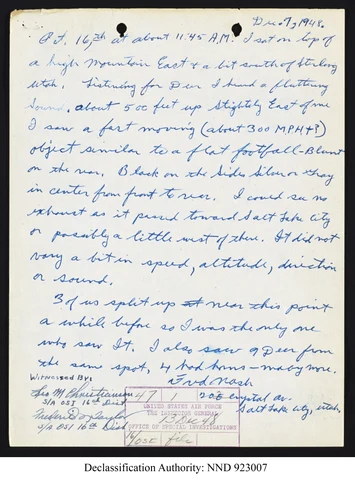 Dec. 7, 1948.
Oct. 16th at about 11:45 A.M. I sat on top of
a high Mountain East & a bit south of Sterling
Utah. Listening for Deer I heard a fluttering
Sound. about 500 feet up Slightly East of me
I saw a fast moving (about 300 MPH+?)
object similar to a flat football-Blunt
on the rear. Black on the Sides Silver or Gray
in center from front to rear. I could see no
exhaust as it passed toward Salt Lake City
or possably a little west of there. It did not
vary a bit in speed, altitude, direction
or sound.
3 of us split up at near this point
a while before so I was the only one
who saw It. I also saw 9 Deer from
the same spot, 4 had horns-maby more.
Fred Nash
Witnessed By:
Leo M Christiansen
S/A OSI 16th Dist
S/A OSI 16th Dist
Crystal av.
Salt Lake City, Utah.
47 1
UNITED STATES AIR FORCE
THE INSPECTOR GENERAL
13 Dec 48
OFFICE OF SPECIAL INVESTIGATIONS
file
Declassification Authority: NND 923007